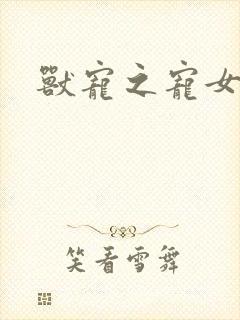 獸寵之寵女
笑看雪舞